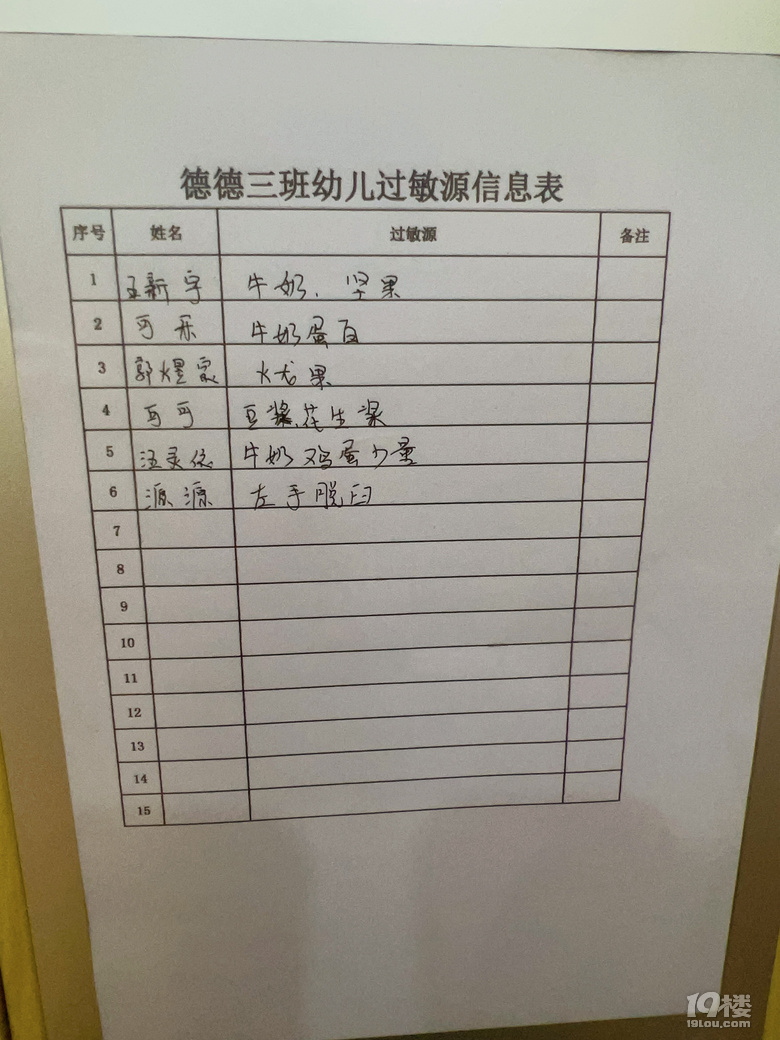 德德三班幼儿过敏源信息表
序号 姓名 过敏源 备注
1 王新宇 牛奶、坚果
2 可乐 牛奶蛋白
3 郭煜宸 火龙果
4 可可 豆浆、花生浆
5 汪灵依 牛奶鸡蛋少量
6 源源 左手脱臼
7
8
9
10
11
12
13
14
15
19楼
19lou.com